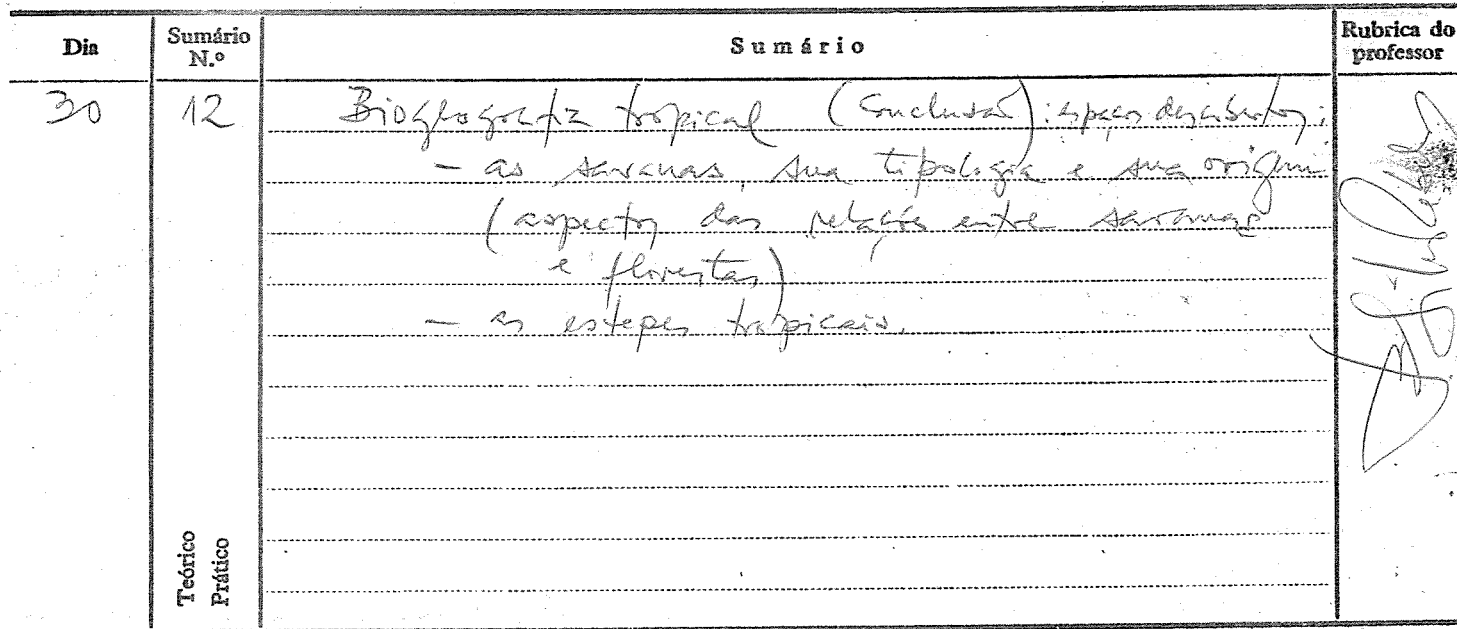 Dia
Sumário N.º
Sumário
Rubrica do professor
30
12
Biogeografia tropical (Conclusão): espaços descobertos:
- as savanas, sua tipologia e sua origem
(aspectos das relações entre savanas
e florestas)
- as estepes tropicais.
Teórico
Prático